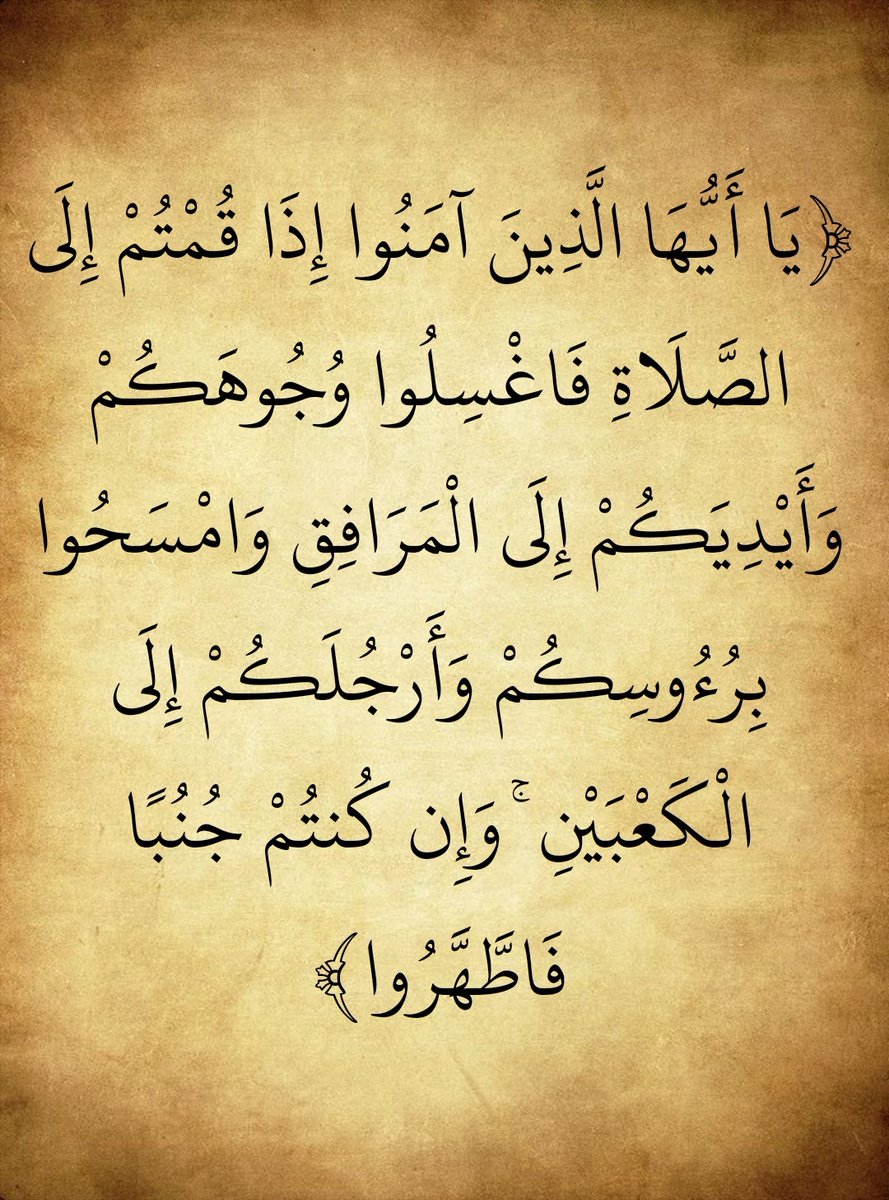 ﴿يَا أَيُّهَا الَّذِينَ آمَنُوا إِذَا قُمْتُمْ إِلَى
الصَّلَاةِ فَاغْسِلُوا وُجُوهَكُمْ
وَأَيْدِيَكُمْ إِلَى الْمَرَافِقِ وَامْسَحُوا
بِرُءُوسِكُمْ وَأَرْجُلَكُمْ إِلَى
الْكَعْبَيْنِ ۚ وَإِن كُنتُمْ جُنُبًا
فَاطَّهَّرُوا﴾